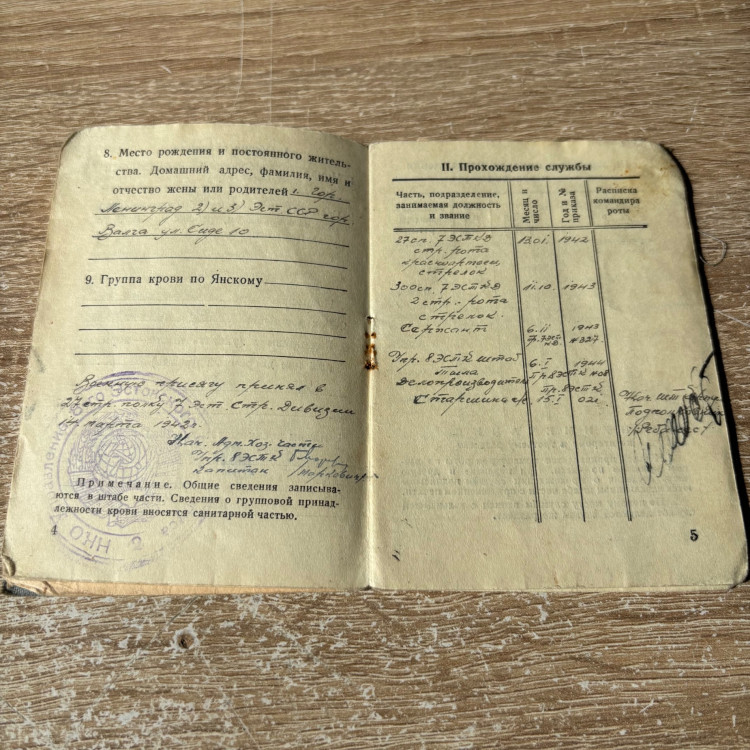 8. Место рождения и постоянного житель-
ства. Домашний адрес, фамилия, имя и
отчество жены или родителей 1. гор.
Ленинград 2) и 3) Эст. ССР гор.
Валга ул. Сиде 10
9. Группа крови по Янскому
Военную присягу принял в
27 стр. полку 7 эст. Стр. Дивизии
марта 1942 г.
Нач. Адм. Хоз. части
Упр. 8 ЭСТК
Капитан
Примечание. Общие сведения записыва-
ются в штабе части. Сведения о групповой принад-
лежности крови вносятся санитарной частью.
НКО
4
II. Прохождение службы
Часть, подразделение,
занимаемая должность
и звание
Месяц и
число
Год и №
приказа
Расписка
командира
роты
27 сп. 7 ЭСТКД 1942
стр. рота
красноармеец
стрелок
300 сп. 7 ЭСТКД 1943
2 стр. рота
стрелок.
Сержант 6.II 1943
№327
Упр. 8 ЭСТК штаб 6.I 1944
Тыла
Делопроизводитель
Старшина 15.I
Нач. штаба
5